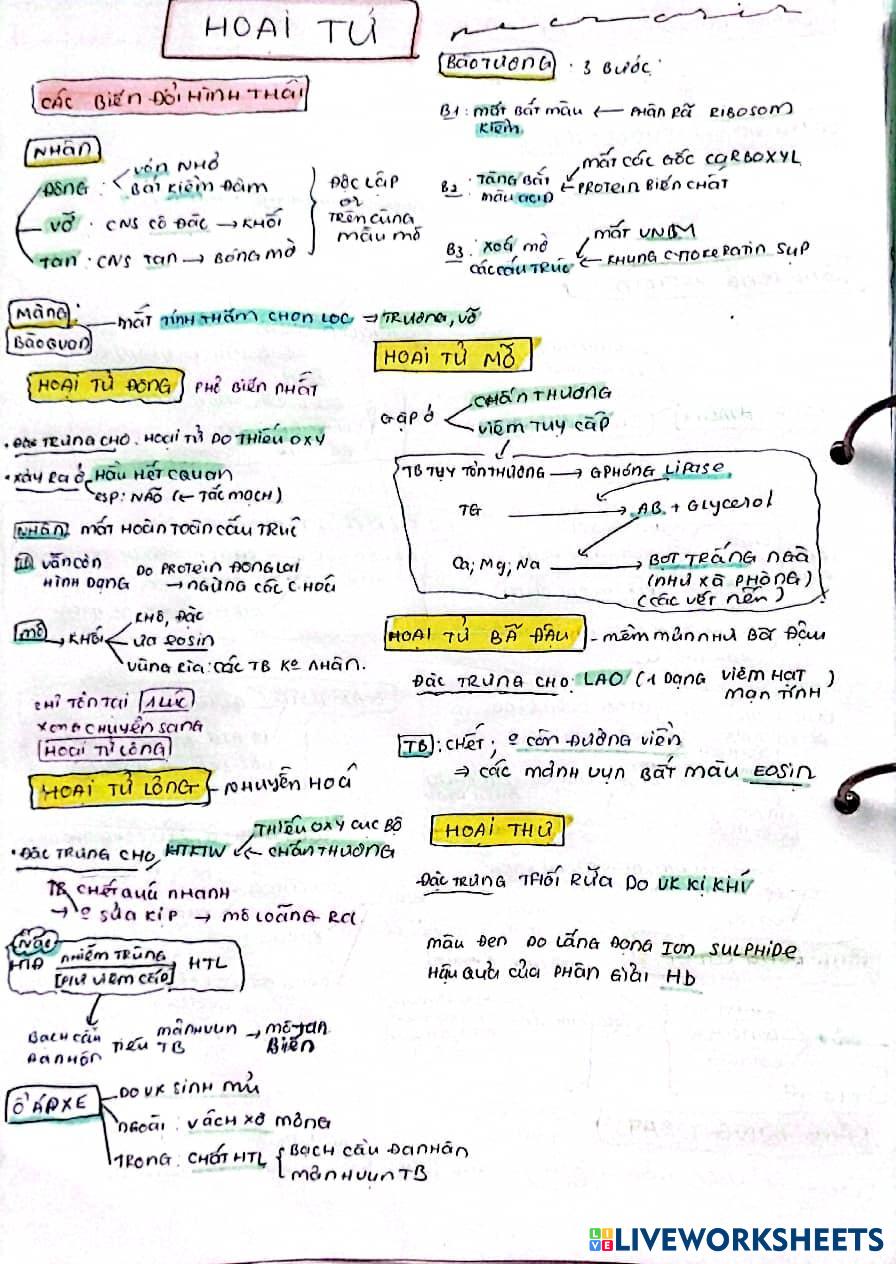 HOẠI TỬ
necrosis
CÁC BIẾN ĐỔI HÌNH THÁI
NHÂN
ĐÔNG: VÓN NHỎ
BẮT KIỀM ĐẬM
VỠ: CNS CÔ ĐẶC → KHỐI
TAN: CNS TAN → BÓNG MỜ
ĐỘC LẬP
or
TRÊN CÙNG
MẪU MÔ
BÀO TƯƠNG: 3 BƯỚC:
B1: MẤT BẮT MÀU KIỀM ← PHÂN RÃ RIBOSOM
B2: TĂNG BẮT MÀU ACID ← MẤT CÁC GỐC CARBOXYL
← PROTEIN BIẾN CHẤT
B3: XOÁ MỜ CÁC CẤU TRÚC ← MẤT
← KHUNG CYTOKERATIN SỤP
MÀNG:
BÀO QUAN
MẤT TÍNH THẤM CHỌN LỌC ⇒ TRƯƠNG, VỠ
HOẠI TỬ ĐÔNG PHỔ BIẾN NHẤT
• ĐẶC TRƯNG CHO: HOẠI TỬ DO THIẾU OXY
• XẢY RA Ở HẦU HẾT CQUAN
ESP: NÃO (← TẮC MẠCH)
NHÂN MẤT HOÀN TOÀN CẤU TRÚC
VẪN CÒN HÌNH DẠNG DO PROTEIN ĐÔNG LẠI
→ NGỪNG CÁC C HOÁ
MÔ → KHỐI
KHÔ, ĐẶC
ƯA EOSIN
VÙNG RÌA: CÁC TB Kº NHÂN.
CHỈ TỒN TẠI 1 LÚC
XONG CHUYỂN SANG
HOẠI TỬ LỎNG
HOẠI TỬ LỎNG - NHUYỄN HOÁ
• ĐẶC TRƯNG CHO HTKTW ← THIẾU OXY CỤC BỘ
← CHẤN THƯƠNG
TB CHẾT QUÁ NHANH
→ º SỬA KỊP → MÔ LOÃNG RA.
HTĐ NHIỄM TRÙNG → HTL
BẠCH CẦU ĐA NHÂN TIÊU MẢNH VỤN TB → MÔ TAN BIẾN
Ổ ÁPXE
DO VK SINH MỦ
NGOÀI: VÁCH XƠ MỎNG
TRONG: CHẤT HTL { BẠCH CẦU ĐA NHÂN
MẢNH VỤN TB
HOẠI TỬ MỠ
GẶP Ở CHẤN THƯƠNG
VIÊM TỤY CẤP
TB TỤY TỔN THƯƠNG → GPHÓNG LIPASE
TG → AB + GLYCEROL
Ca, Mg, Na → BỘT TRẮNG NGÀ
(NHƯ XÀ PHÒNG)
(CÁC VẾT NẾN)
HOẠI TỬ BÃ ĐẬU - MỀM MỦN NHƯ BÃ ĐẬU
ĐẶC TRƯNG CHO: LAO (1 DẠNG VIÊM HẠT MẠN TÍNH)
TB: CHẾT, º CÒN ĐƯỜNG VIỀN
⇒ CÁC MẢNH VỤN BẮT MÀU EOSIN
HOẠI THƯ
ĐẶC TRƯNG THỐI RỮA DO VK KỊ KHÍ
MÀU ĐEN DO LẮNG ĐỌNG ION SULPHIDE
HẬU QUẢ CỦA PHÂN GIẢI Hb
LIVEWORKSHEETS